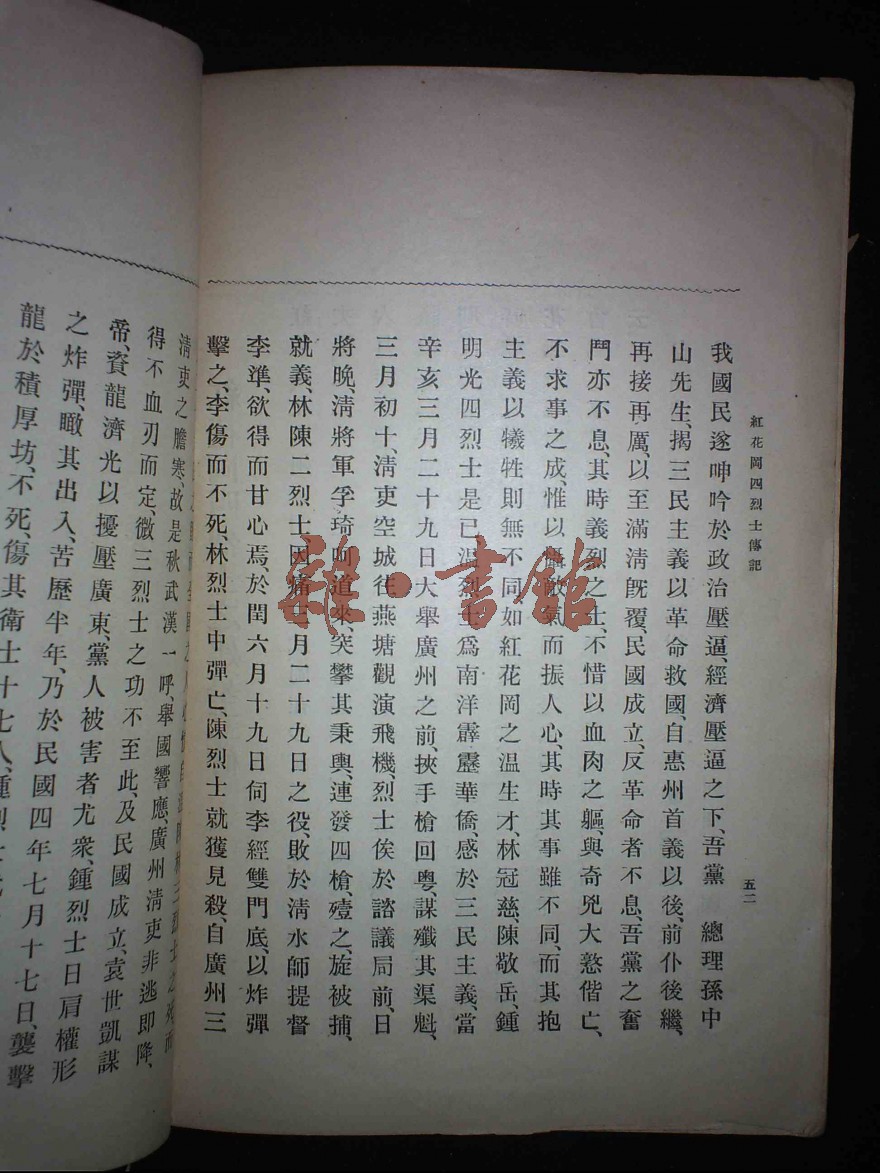 紅花岡四烈士傳記
五二
我國民遂呻吟於政治壓逼、經濟壓逼之下、吾黨 總理孫中
山先生、揭三民主義以革命救國、自惠州首義以後、前仆後繼、
再接再厲、以至滿清旣覆、民國成立、反革命者不息、吾黨之奮
鬥亦不息、其時義烈之士、不惜以血肉之軀、與奇兇大憝偕亡、
不求事之成、惟以懾敵氣而振人心、其時其事雖不同、而其抱
主義以犧牲則無不同、如紅花岡之温生才、林冠慈、陳敬岳、鍾
明光四烈士是已、温烈士爲南洋霹靂華僑、感於三民主義、當
辛亥三月二十九日大舉廣州之前、挾手槍回粵、謀殲其渠魁、
三月初十、淸吏空城往燕塘觀演飛機、烈士俟於諮議局前、日
將晚、淸將軍孚琦呵道來、突攀其乘輿、連發四槍、殪之、旋被捕、
就義、林陳二烈士因痛三月二十九日之役、敗於清水師提督
李準、欲得而甘心焉、於閏六月十九日伺李經雙門底、以炸彈
擊之、李傷而不死、林烈士中彈亡、陳烈士就獲見殺、自廣州三
淸吏之膽寒、故是秋武漢一呼、舉國響應、廣州淸吏非逃即降、
得不血刃而定、微三烈士之功不至此、及民國成立、袁世凱謀
帝、資龍濟光以擾壓廣東、黨人被害者尤衆、鍾烈士日肩權形
之炸彈、瞰其出入、苦歷半年、乃於民國四年七月十七日、襲擊
龍於積厚坊、不死、傷其衛士十七人、鍾烈士
雜·書館